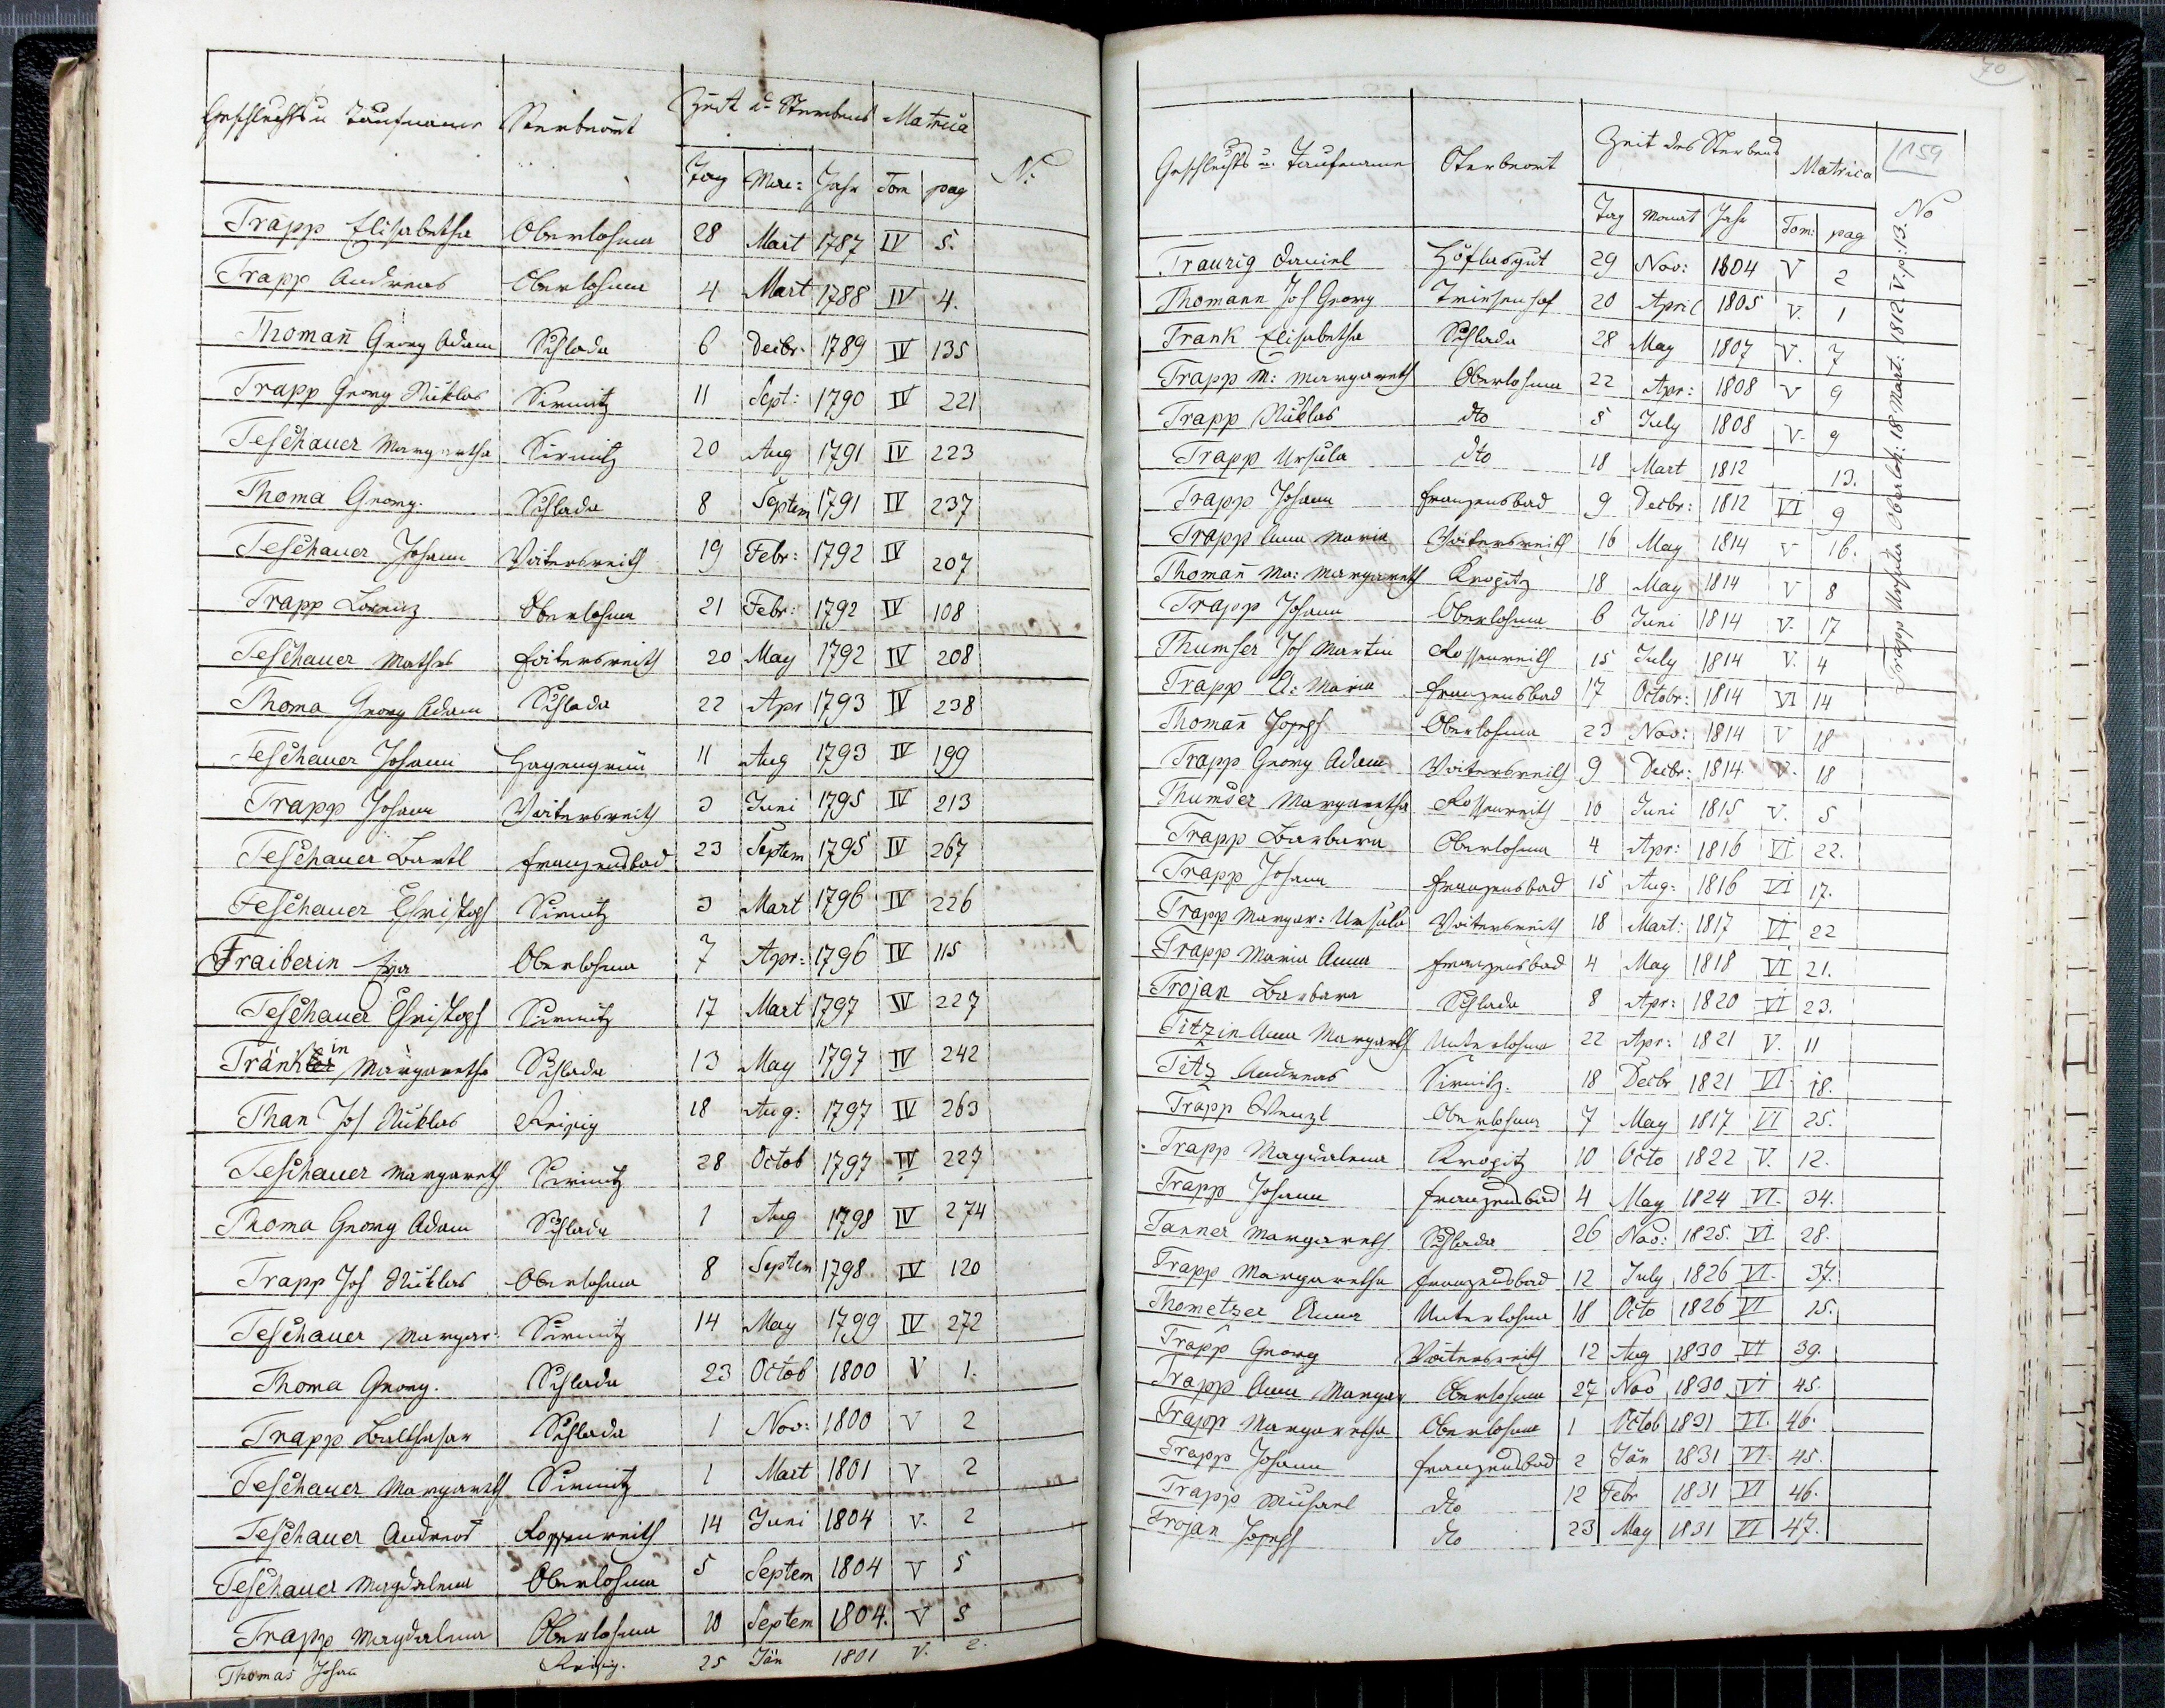 Geschlechts u Taufname Sterbeort Zeit d. Sterbens Matrica N:
Tag Mon: Jahr Tom pag
Trapp Elisabetha Oberlohma 28 Mart 1787 IV 5.
Trapp Andreas Oberlohma 4 Mart 1788 IV 4.
Thomañ Georg Adam Schlada 6 Decbr. 1789 IV 135
Trapp Georg Niklas Sirmitz 11 Sept: 1790 IV 221
Teschauer Margaretha Sirmitz 20 Aug 1791 IV 223
Thoma Georg. Schlada 8 Septem 1791 IV 237
Teschauer Johann Voitersreith 19 Febr: 1792 IV 207
Trapp Lorenz Oberlohma 21 Febr: 1792 IV 108
Teschauer Mathes Foitersreith 20 May 1792 IV 208
Thoma Georg Adam Schlada 22 Apr 1793 IV 238
Teschauer Johann Hagengrün 11 Aug 1793 IV 199
Trapp Johann Voitersreith 3 Juni 1795 IV 213
Teschauer Bartl Franzensbad 23 Septem 1795 IV 267
Teschauer Christoph Sirmitz 3 Mart 1796 IV 226
Fraiberin Eva Oberlohma 7 Apr: 1796 IV 115
Teschauer Christoph Sirmitz 17 Mart 1797 IV 227
Tränkin Margaretha Schlada 13 May 1797 IV 242
Than Joh Niklas Reisig 18 Aug: 1797 IV 263
Teschauer Margareth Sirmitz 28 Octob 1797 IV 227
Thoma Georg Adam Schlada 1 Aug 1798 IV 274
Trapp Joh Niklas Oberlohma 8 Septem 1798 IV 120
Teschauer Margar: Sirmitz 14 May 1799 IV 272
Thoma Georg. Schlada 23 Octob 1800 V 1.
Trapp Balthasar Schlada 1 Nov: 1800 V 2
Teschauer Margareth Sirmitz 1 Mart 1801 V 2
Teschauer Andreas Rossenreith 14 Juni 1804 V. 2
Teschauer Magdalena Oberlohma 5 Septem 1804 V 5
Trapp Magdalena Oberlohma 10 Septem 1804. V 5
Thomas Johañ Reisig. 25 Jän 1801 V. 2.
70
159
Geschlechts u. Taufname Sterbeort Zeit des Sterbens Matrica No
Tag Monat Jahr Tom: pag
Traurig Daniel Höflasgut 29 Nov: 1804 V 2
Thomann Joh Georg Triesenhof 20 April 1805 V. 1
Trank Elisabetha Schlada 28 May 1807 V. 7
Trapp M: Margareth Oberlohma 22 Apr: 1808 V 9
Trapp Niklas dto 5 July 1808 V. 9
Trapp Ursula dto 18 Mart 1812 13.
Trapp Johann Franzensbad 9 Decbr: 1812 VI 9
Trapp Anna Maria Voitersreith 16 May 1814 V 16.
Thomañ Ma: Margareth Kropitz 18 May 1814 V 8
Trapp Johann Oberlohma 6 Juni 1814 V. 17
Thumser Joh Martin Rossenreith 15 July 1814 V. 4
Trapp A: Maria Franzensbad 17 Octobr: 1814 VI 14
Thomañ Joseph Oberlohma 23 Nov: 1814 V 18
Trapp Georg Adam Voitersreith 9 Decbr: 1814. V. 18
Thumser Margaretha Rossenreith 10 Juni 1815 V. 5
Trapp Barbara Oberlohma 4 Apr: 1816 VI 22.
Trapp Johann Franzensbad 15 Aug: 1816 VI 17.
Trapp Margar: Ursula Voitersreith 18 Mart: 1817 VI 22
Trapp Maria Anna Franzensbad 4 May 1818 VI 21.
Trojan Barbara Schlada 8 Apr: 1820 VI 23.
Titzin Anna Margareth Unterlohma 22 Apr: 1821 V. 11
Titz Andreas Sirmitz. 18 Decbr 1821 VI 18.
Trapp Wenzl Oberlohma 7 May 1817 VI 25.
Trapp Magdalena Kropitz 10 Octo 1822 V. 12.
Trapp Johann Franzensbad 4 May 1824 VI. 34.
Tanner Margareth Schlada 26 Nov: 1825. VI 28.
Trapp Margaretha Franzensbad 12 July 1826 VI. 37.
Thometzer Anna Unterlohma 18 Octo 1826 VI 25.
Trapp Georg Voitersreith 12 Aug 1830 VI 39.
Trapp Anna Margar Oberlohma 27 Nov 1830 VI 45.
Trapp Margaretha Oberlohma 1 Octob 1831 VI. 46.
Trapp Johann Franzensbad 2 Jän 1831 VI. 45.
Trapp Michael dto 12 Febr 1831 VI 46.
Trojan Joseph dto 23 May 1831 VI 47.
Trapp Ursula Oberloh: 18 Mart: 1812. V. p: 13.